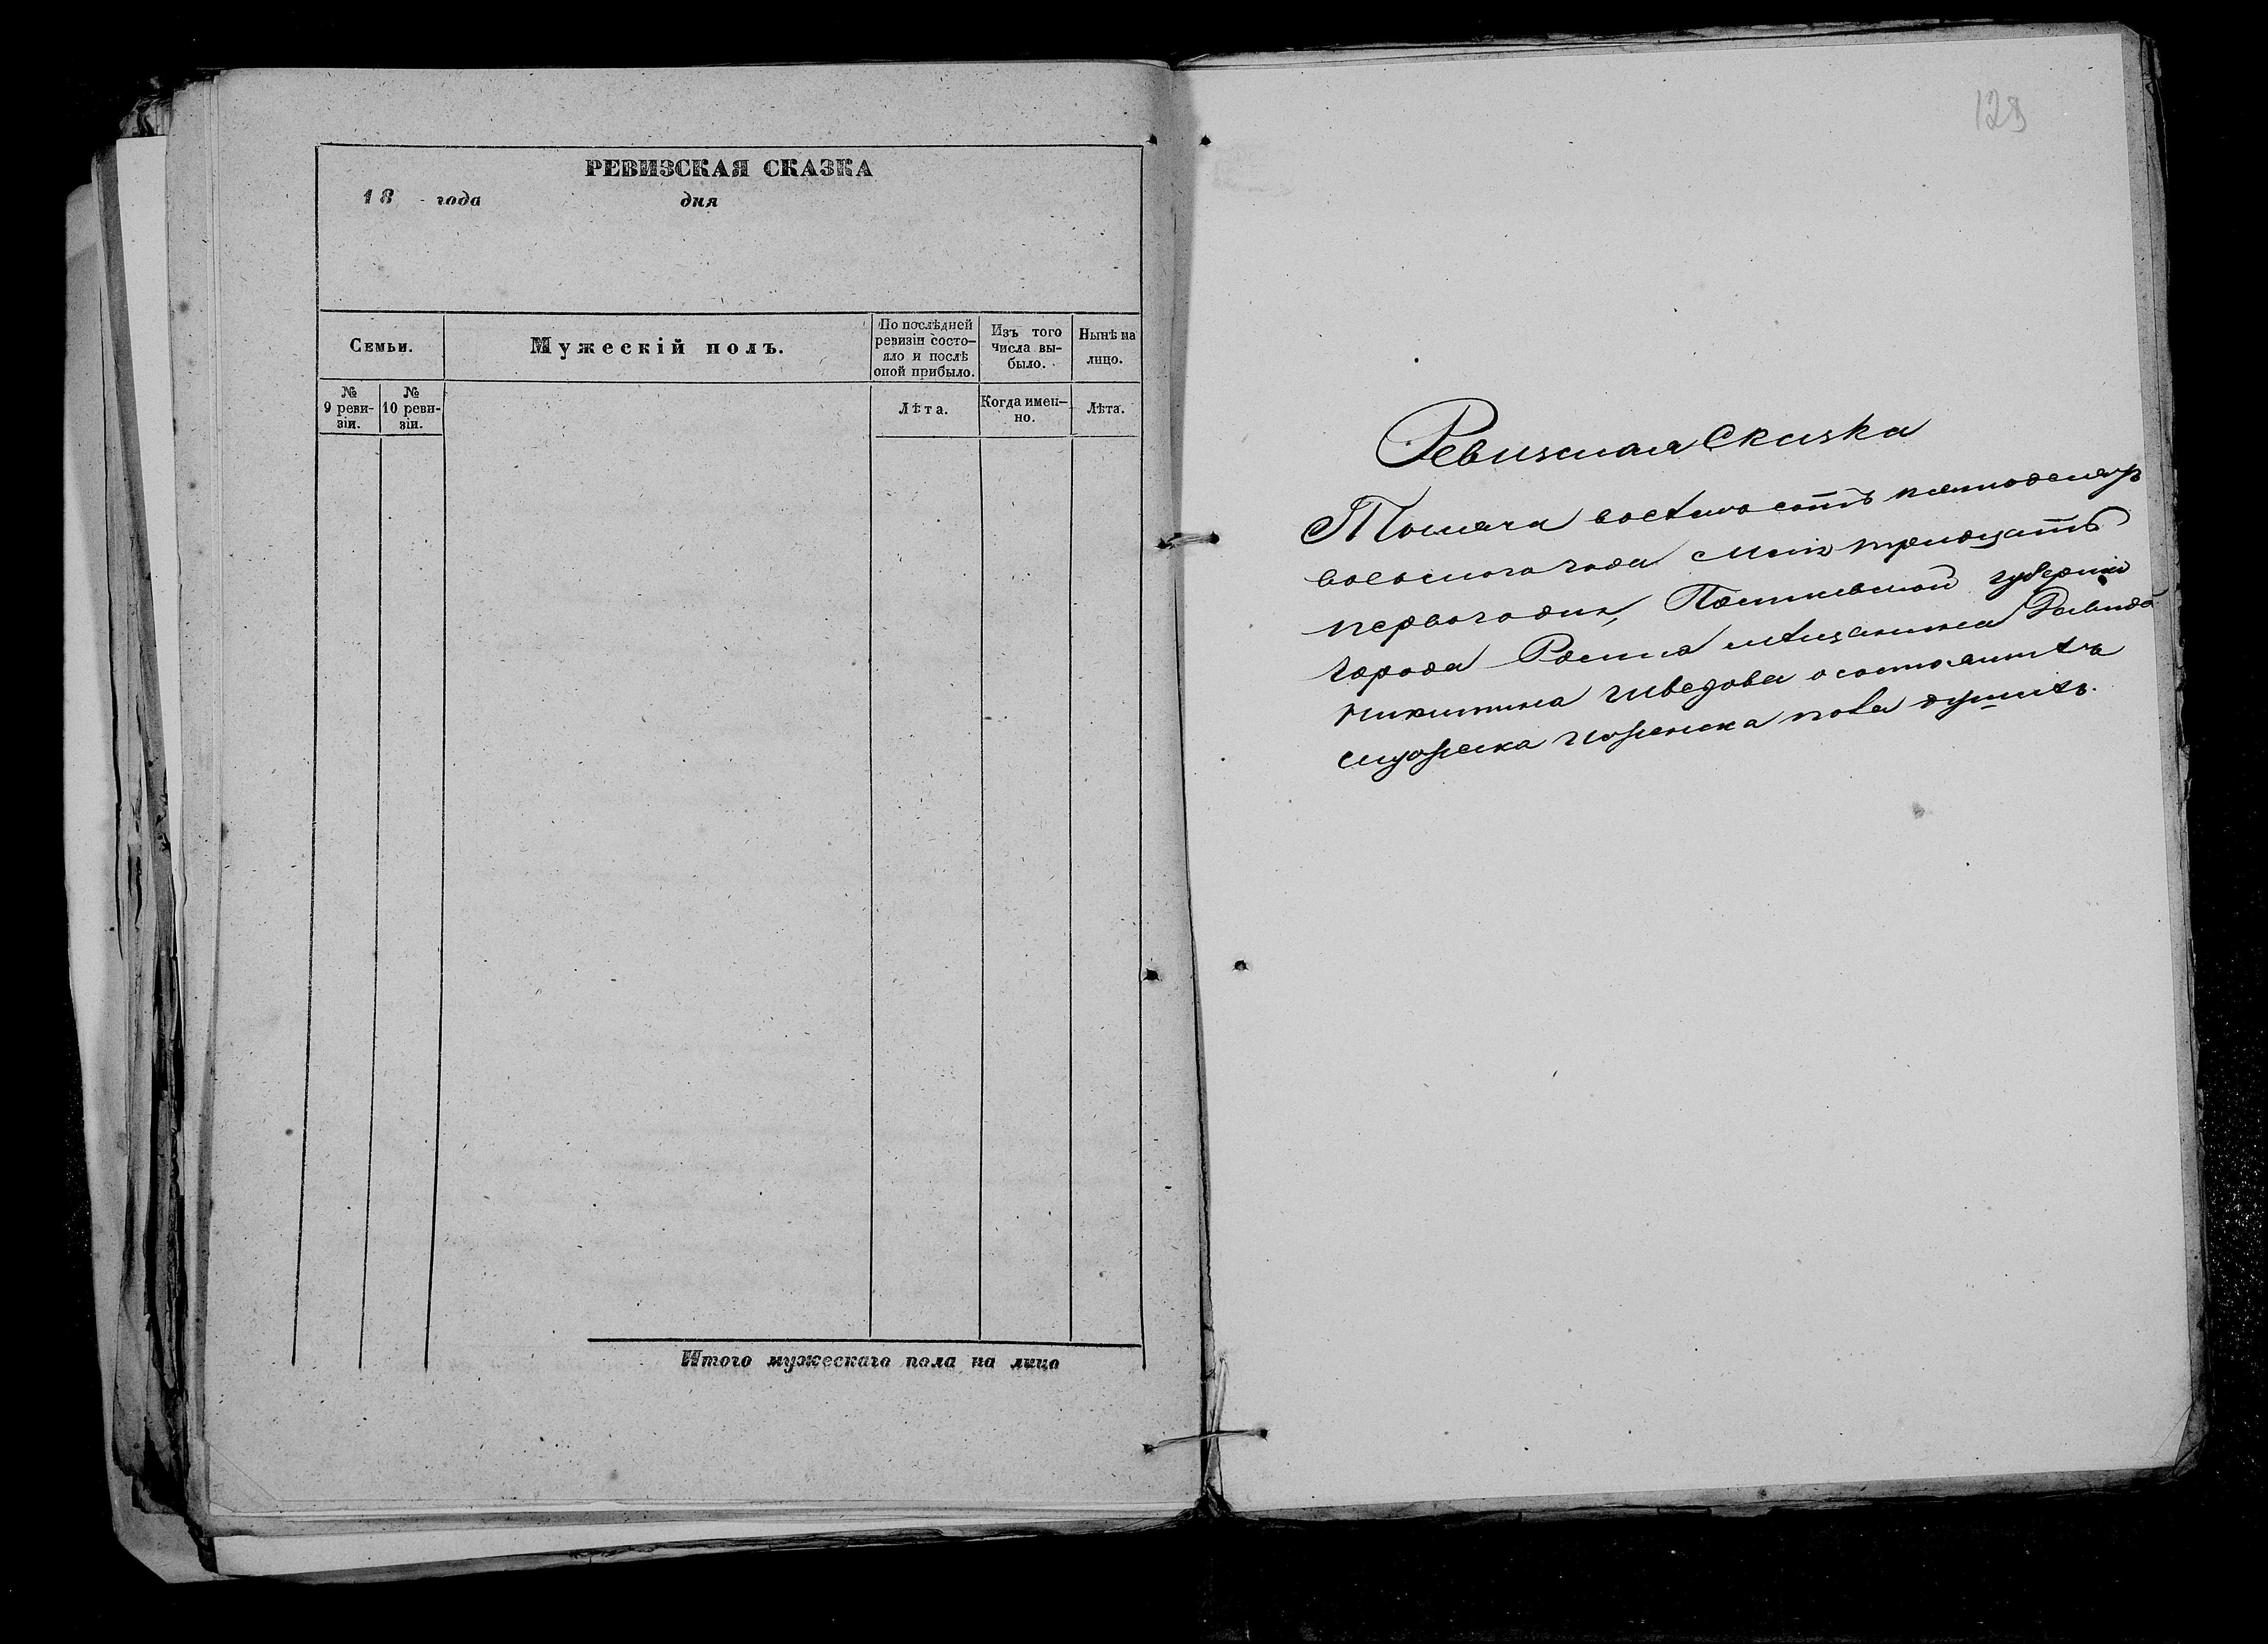 РЕВИЗСКАЯ СКАЗКА
18 года дня
Семьи.
Мужескій полъ.
По послѣдней
ревизіи состо-
яло и послѣ
оной прибыло.
Изъ того
числа вы-
было.
Нынѣ на
лицо.
№
9 реви-
зіи.
№
10 реви-
зіи.
Лѣта.
Когда имен-
но.
Лѣта.
Итого мужескаго пола на лицо
Ревизская Сказка
Тысяча восемьсотъ
восьмого года Маія тридцать
первого дня, губерніи
города мѣщанина Давида
Никитина Шведова о состоящихъ
мужеска и женска пола душахъ.